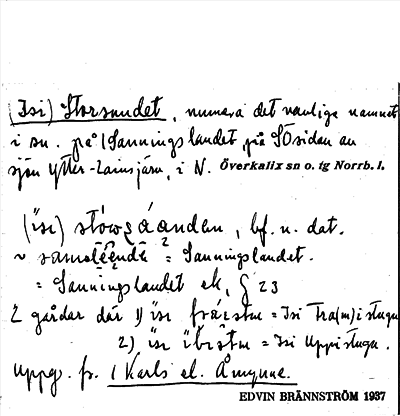 (Isi) Storsundet, numera det vanliga namnet
i sn. på (Sanningslandet på SOsidan av
sjön Ytter-Lainsjärv, i N. Överkalix sn o. tg Norrb. l.
(isi) bf. n. dat.
= Sanningslandet.
= Sanningslandet ek. § 23
2 gårdar där 1) = Isi Fra(m)i stugu
2) = Isi Uppi stugu.
Uppg. fr. (Karls el. Åmynne.
EDVIN BRÄNNSTRÖM 1937